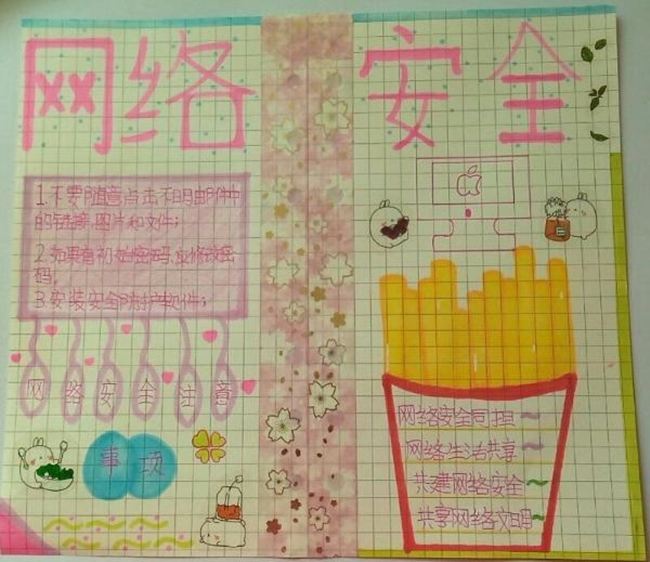 网络安全
1.不要随意点击不明邮件中
的链接、图片和文件;
2.如果有初始密码,应修改密
码;
3.安装安全防护软件;
网络安全注意
事项
网络安全同担~
网络生活共享~
共建网络安全~
共享网络文明~